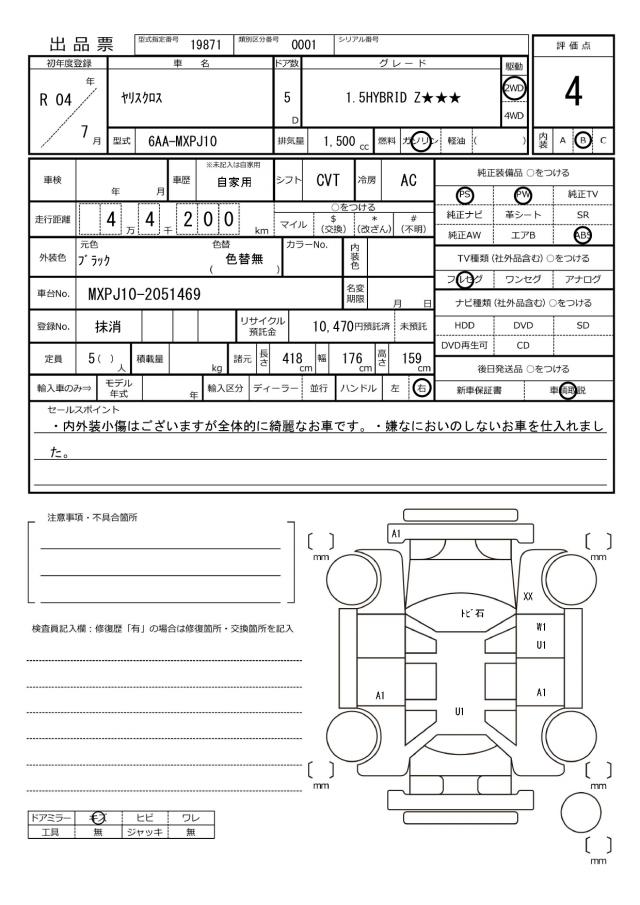 出品票
型式指定番号 19871 類別区分番号 0001 シリアル番号
初年度登録 車名 ドア数 グレード 駆動 評価点
R 04 年 7 月
ヤリスクロス 5 D 1.5HYBRID Z★★★ 2WD 4WD 4
型式 6AA-MXPJ10 排気量 1,500 cc 燃料 ガソリン 軽油 ( ) 内装 A B C
車検 年 月 車歴 ※未記入は自家用 自家用 シフト CVT 冷房 AC
走行距離 4 万 4 千 2 0 0 km
○をつける
マイル $ (交換) * (改ざん) # (不明)
外装色 元色 ブラック 色替 ( 色替無 ) カラーNo. 内装色
車台No. MXPJ10-2051469 名変期限 月 日
登録No. 抹消 リサイクル預託金 10,470円預託済 未預託
定員 5 ( ) 人 積載量 kg 諸元 長さ 418 cm 幅 176 cm 高さ 159 cm
輸入車のみ⇒ モデル年式 年 輸入区分 ディーラー 並行 ハンドル 左 右
純正装備品 ○をつける
PS PW 純正TV
純正ナビ 革シート SR
純正AW エアB ABS
TV種類 (社外品含む) ○をつける
フルセグ ワンセグ アナログ
ナビ種類 (社外品含む) ○をつける
HDD DVD SD
DVD再生可 CD
後日発送品 ○をつける
新車保証書 車輌取説
セールスポイント
・内外装小傷はございますが全体的に綺麗なお車です。・嫌なにおいのしないお車を仕入れまし
た。
注意事項・不具合箇所
検査員記入欄：修復歴「有」の場合は修復箇所・交換箇所を記入
A1
mm
mm
XX
トビ石
W1
U1
A1
A1
U1
mm
mm
mm
ドアミラー キズ ヒビ ワレ
工具 無 ジャッキ 無